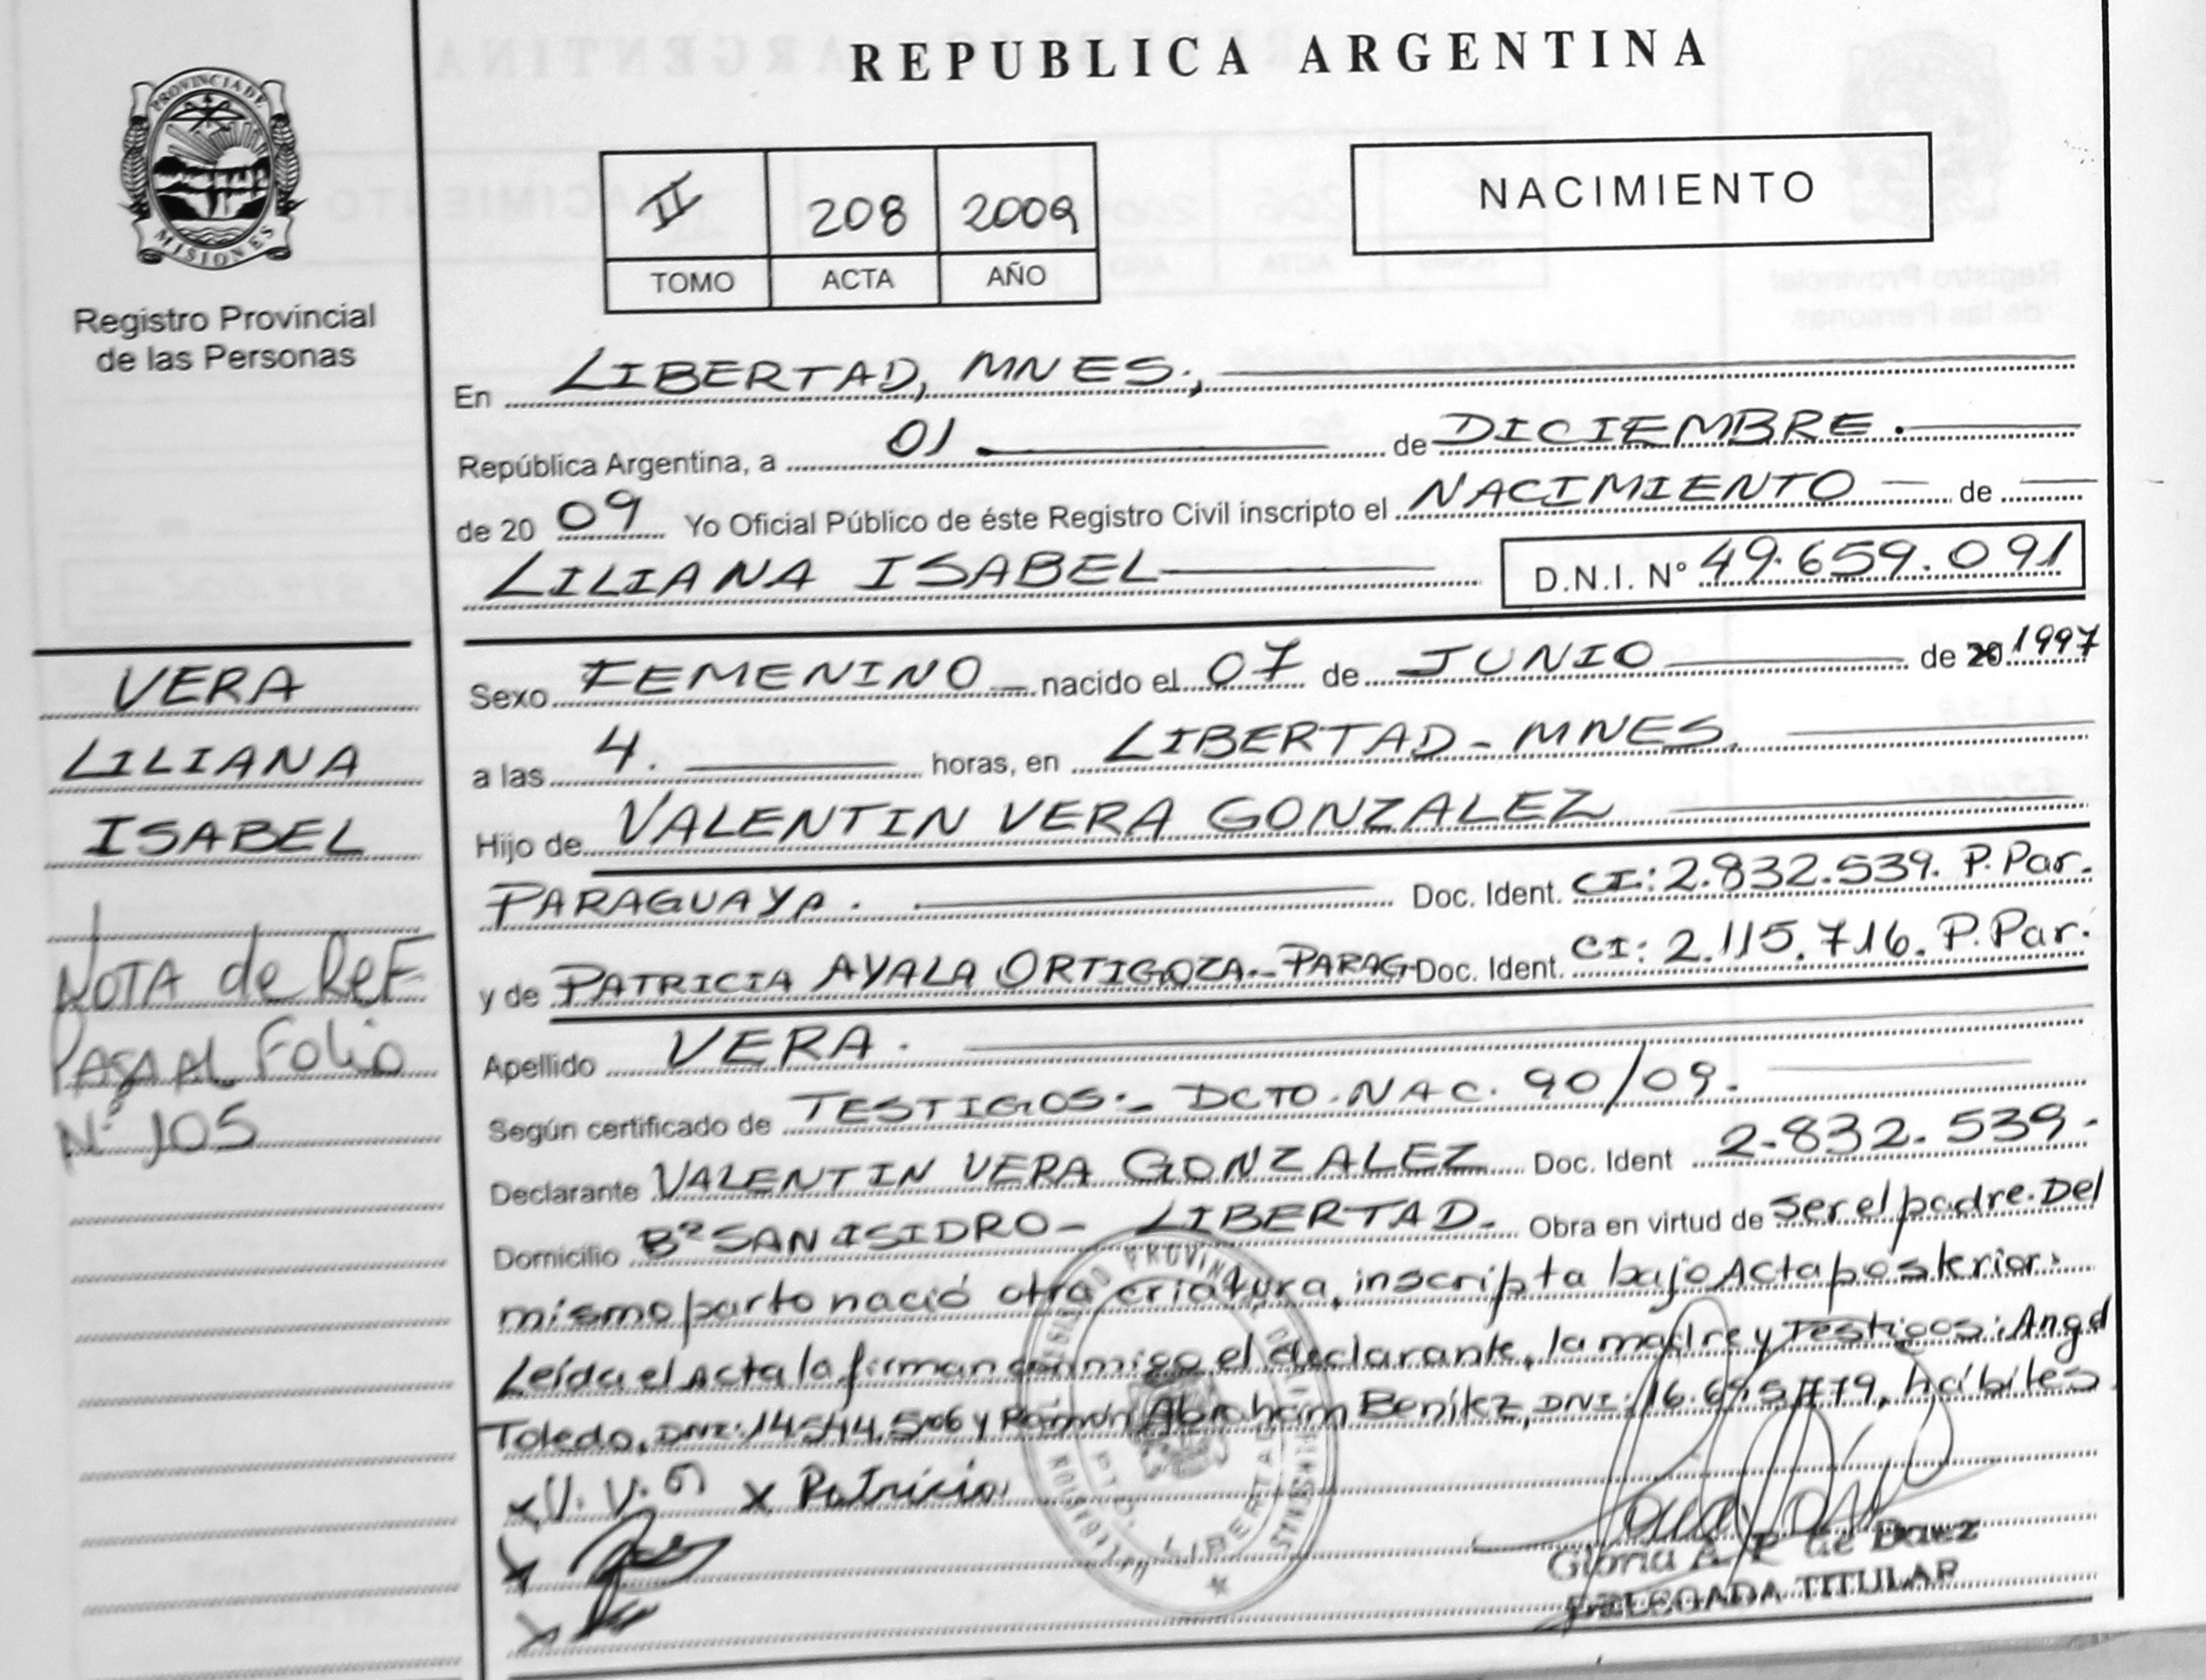 REPUBLICA ARGENTINA
PROVINCIA DE
MISIONES
Registro Provincial
de las Personas
II 208 2009
TOMO ACTA AÑO
NACIMIENTO
En LIBERTAD, MNES.,
República Argentina, a 01 de DICIEMBRE.
de 20 09 Yo Oficial Público de éste Registro Civil inscripto el NACIMIENTO de
LILIANA ISABEL D.N.I. Nº 49.659.091
VERA
LILIANA
ISABEL
NOTA de Ref
PASA AL Folio
Nº 105
Sexo FEMENINO nacido el 07 de JUNIO de 20 1997
a las 4. horas, en LIBERTAD - MNES.
Hijo de VALENTIN VERA GONZALEZ
PARAGUAYA. Doc. Ident. CI: 2.832.539. P. Par.
y de PATRICIA AYALA ORTIGOZA.- PARAG Doc. Ident. CI: 2.115.716. P. Par.
Apellido VERA.
Según certificado de TESTIGOS.- DCTO. NAC. 90/09.
Declarante VALENTIN VERA GONZALEZ Doc. Ident 2.832.539.-
Domicilio Bº SAN ISIDRO - LIBERTAD.- Obra en virtud de ser el padre. Del
mismo parto nació otra criatura, inscripta bajo Acta posterior.
Leída el Acta la firman conmigo el declarante, la madre y Testigos: Angel
Toledo, DNI: y Ramón Abraham Benítez, DNI: hábiles.
x V. V. G x Patricia
x
x
LIBERTAD
Gloria A. P. de Baez
DELEGADA TITULAR